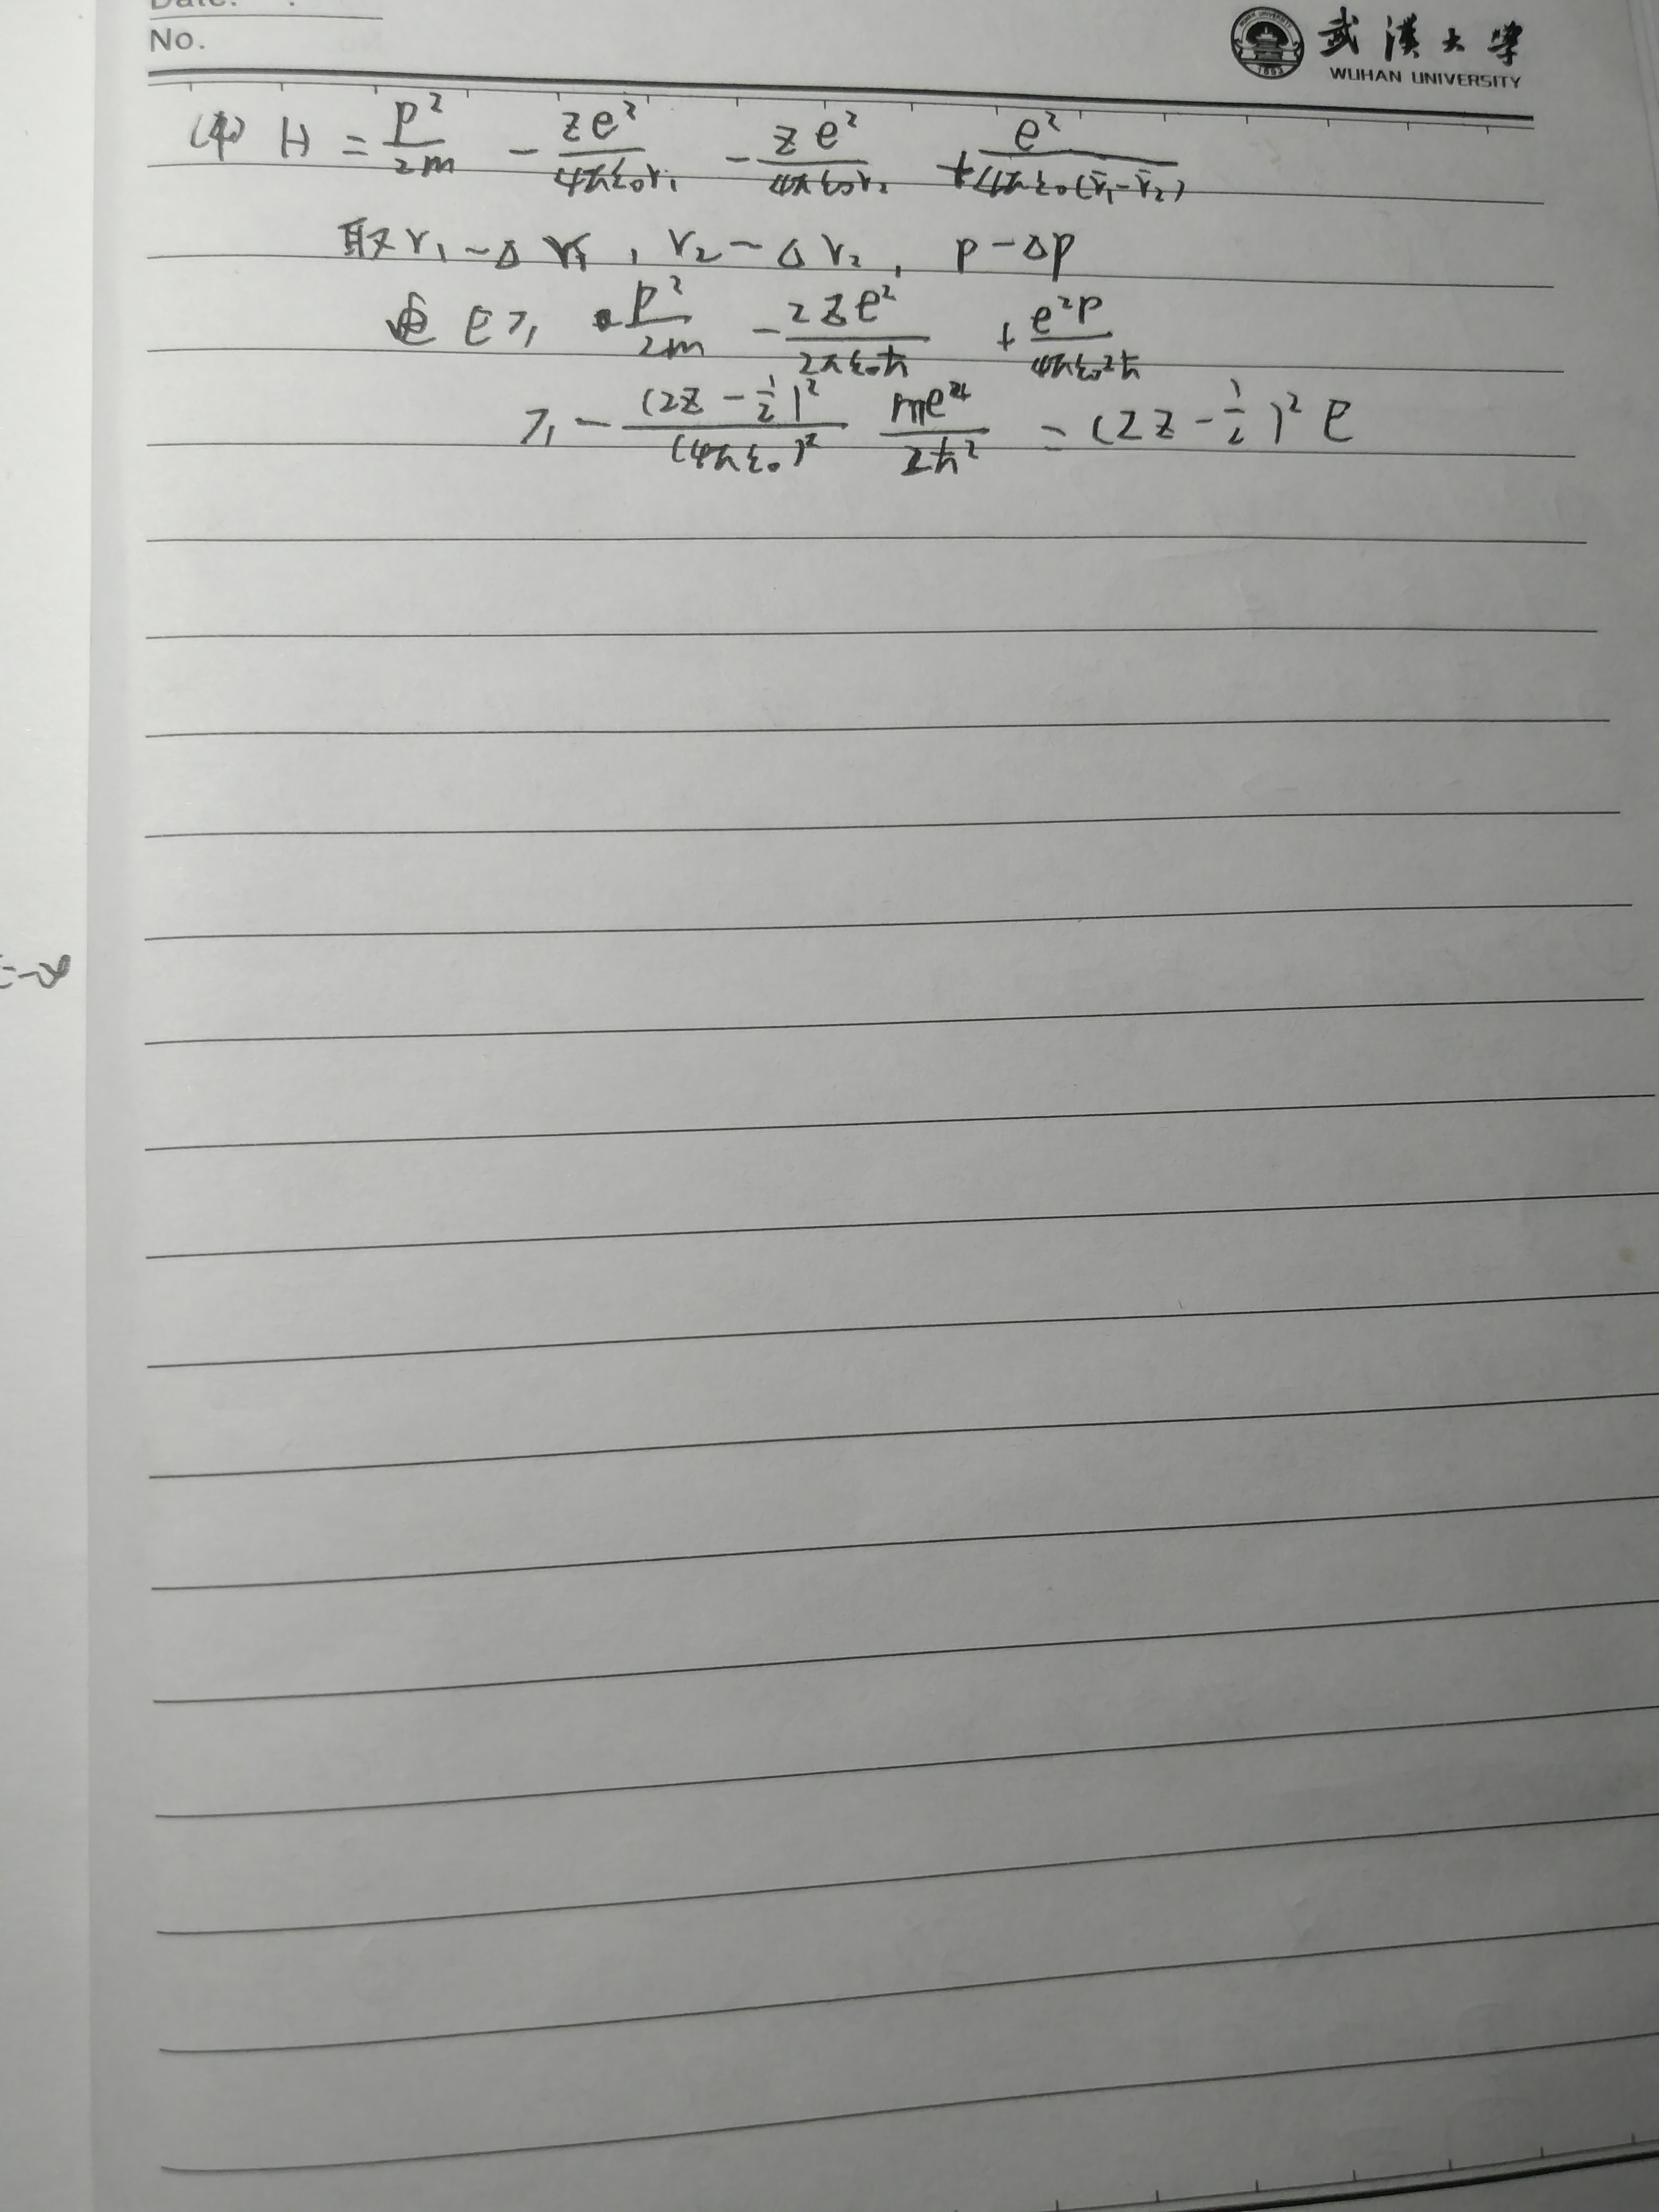 Date:
No.
武漢大学
WUHAN UNIVERSITY
1893
(4) H = p²/2m - ze²/4πε₀r₁ - ze²/4πε₀r₂ + e²/4πε₀(r̄₁-r̄₂)
取 r₁~Δr₁, r₂~Δr₂, p~Δp
E ≥ p²/2m - 2ze²/2πε₀ħ + e²p/4πε₀2ħ
≥ - (2z-½)²/(4πε₀)² me⁴/2ħ² = (2z-½)² E
=-∞